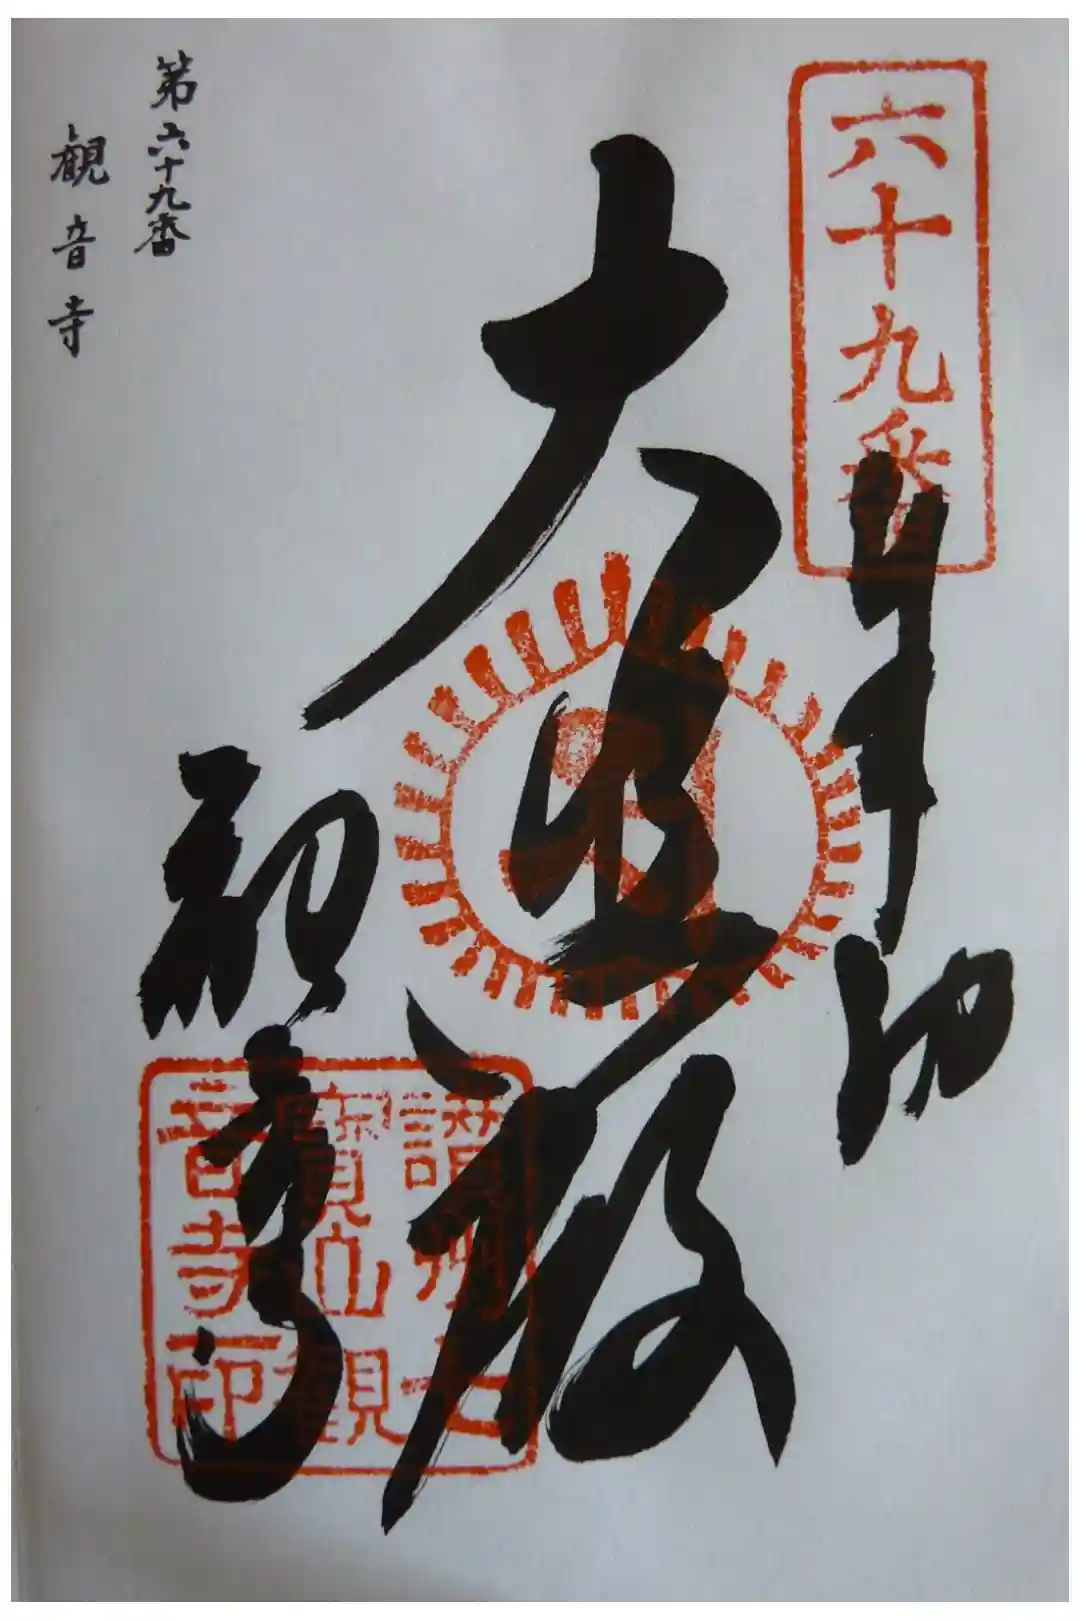 六十九番
奉納
大悲殿
観音寺
讃州七
寶山觀
音寺印
第六十九番
観音寺